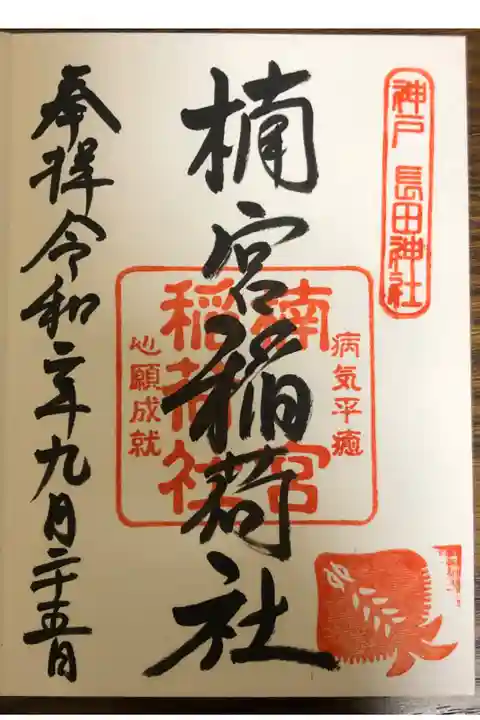 神戸 長田神社
病気平癒
楠宮
稲荷社
心願成就
楠宮稲荷社
奉拝令和二年九月二十五日